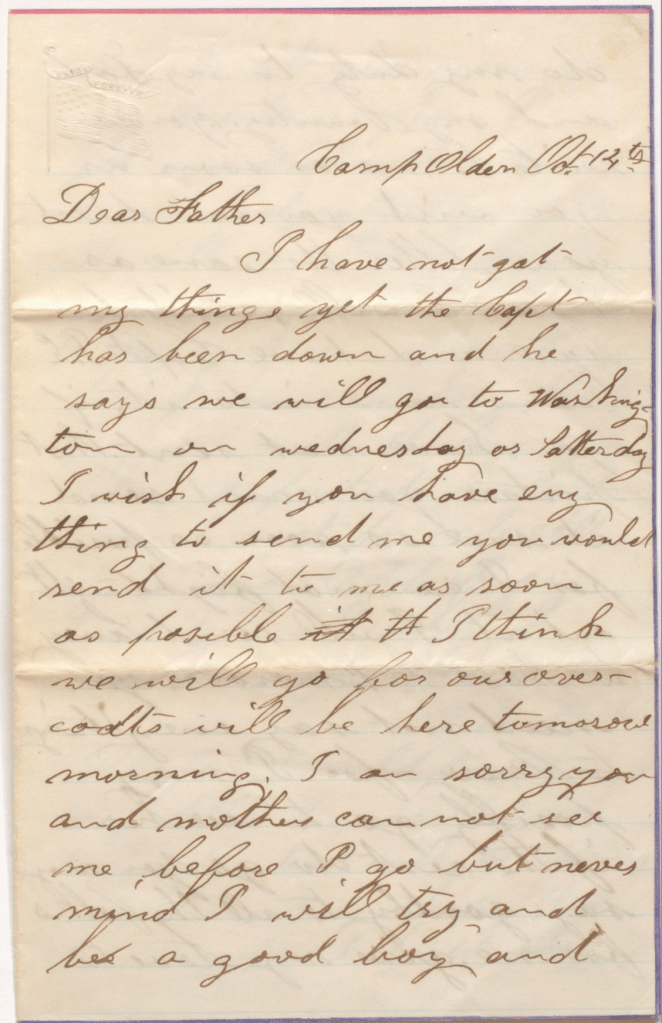 Camp Olden Oct 14th
Dear Father
I have not got
my things yet the Capt
has been down and he
says we will go to Washing-
ton on wednesday or Satterday
I wish if you have eny
thing to send me you would
send it to me as soon
as posible it tt I think
we will go for our over-
coats will be here tomorow
morning. I am sorry you
and mother can not see
me before I go but never
mind I will try and
be a good boy and